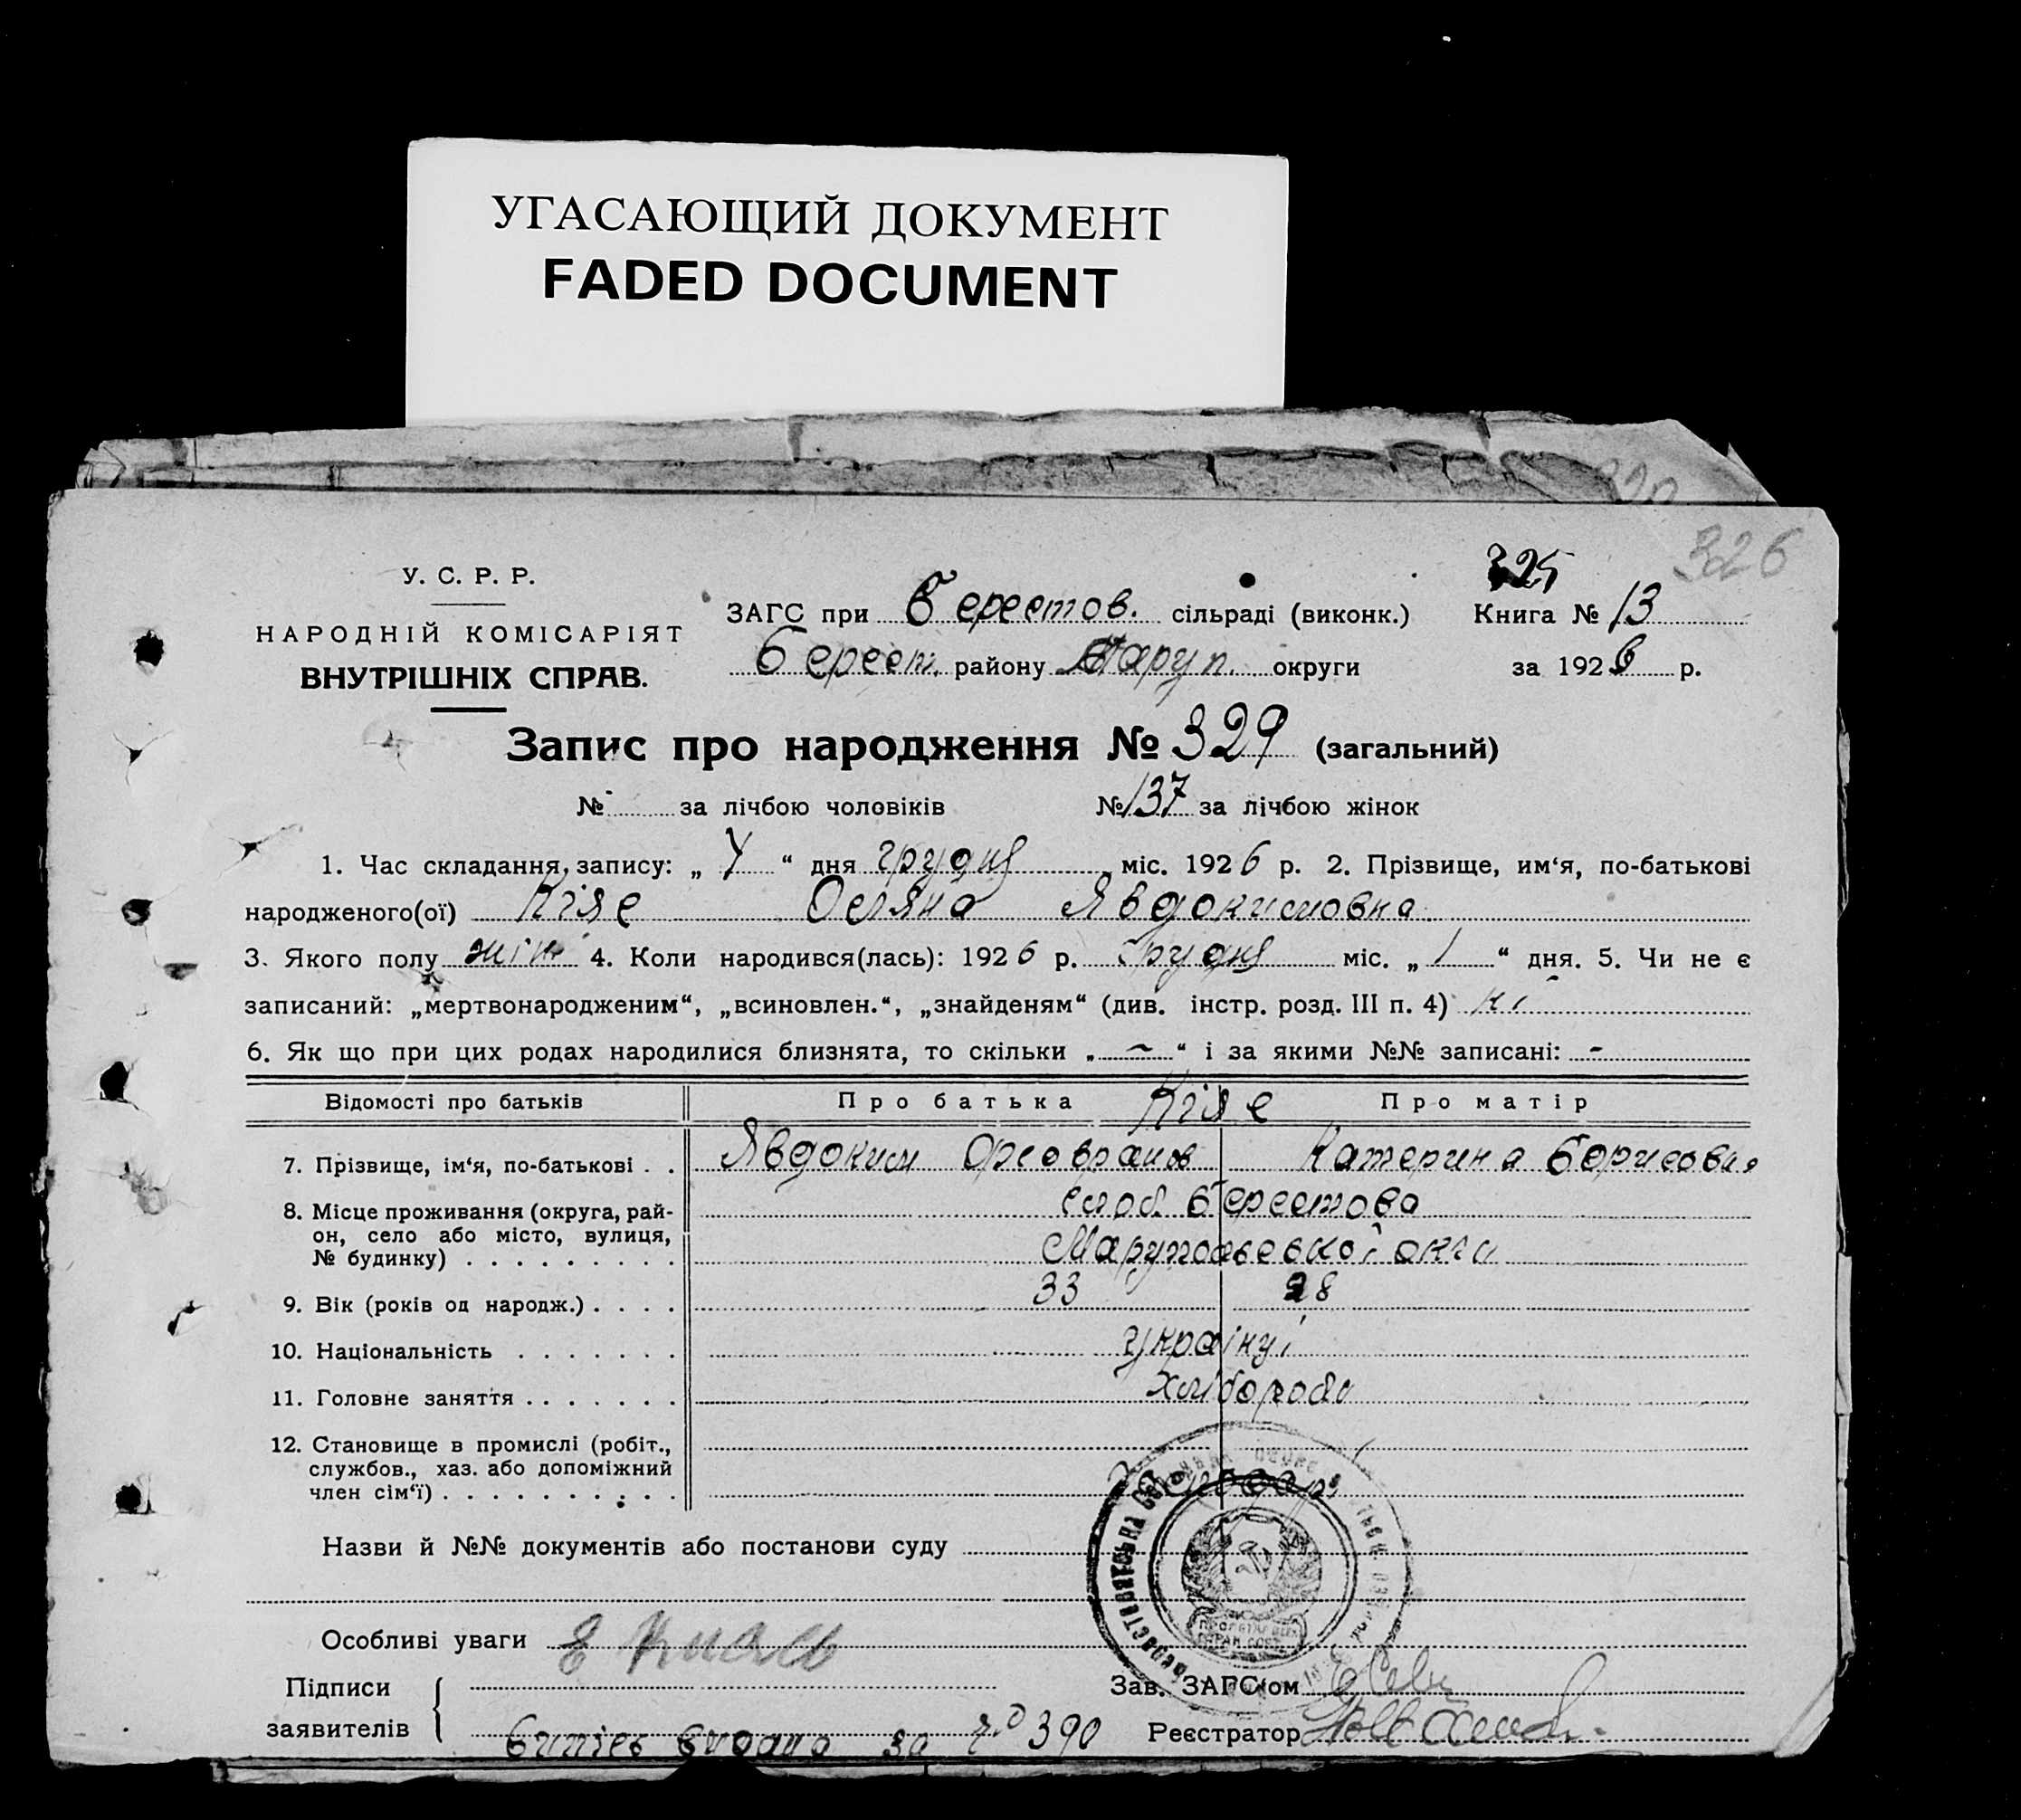 УГАСАЮЩИЙ ДОКУМЕНТ
FADED DOCUMENT
326
325
У. С. Р. Р.
НАРОДНІЙ КОМІСАРІЯТ
ВНУТРІШНІХ СПРАВ.
ЗАГС при Берестов. сільраді (виконк.) Книга № 13
Берест. району Маруп. округи за 1926 р.
Запис про народження № 329 (загальний)
№ - за лічбою чоловіків № 137 за лічбою жінок
1. Час складання запису: „ 4 “ дня грудня міс. 1926 р. 2. Прізвище, им‘я, по-батькові
народженого(ої) Кіяе Явдокимовна
3. Якого полу жін 4. Коли народився(лась): 1926 р. Грудня міс. „ 1 “ дня. 5. Чи не є
записаний: „мертвонародженим“, „всиновлен.“, „знайденям“ (див. інстр. розд. III п. 4) ні
6. Як що при цих родах народилися близнята, то скільки „ - “ і за якими №№ записані: -
Відомості про батьків Про батька Кіяе Про матір
7. Прізвище, ім‘я, по-батькові . . Явдоким Катерина Борисовна
8. Місце проживання (округа, рай- слоб. Берестова
он, село або місто, вулиця,
№ будинку) . . . . . . . . . Марупольської окги
9. Вік (років од народж.) . . . . 33 28
10. Національність . . . . . . . українці
11. Головне заняття . . . . . . . хлібороби
12. Становище в промислі (робіт.,
службов., хаз. або допоміжний
член сім‘ї) . . . . . . . . . .
Назви й №№ документів або постанови суду
Особливі уваги
Підписи
заявителів
Зав. ЗАГС‘ом
Витяг видано за № 390 Реєстратор